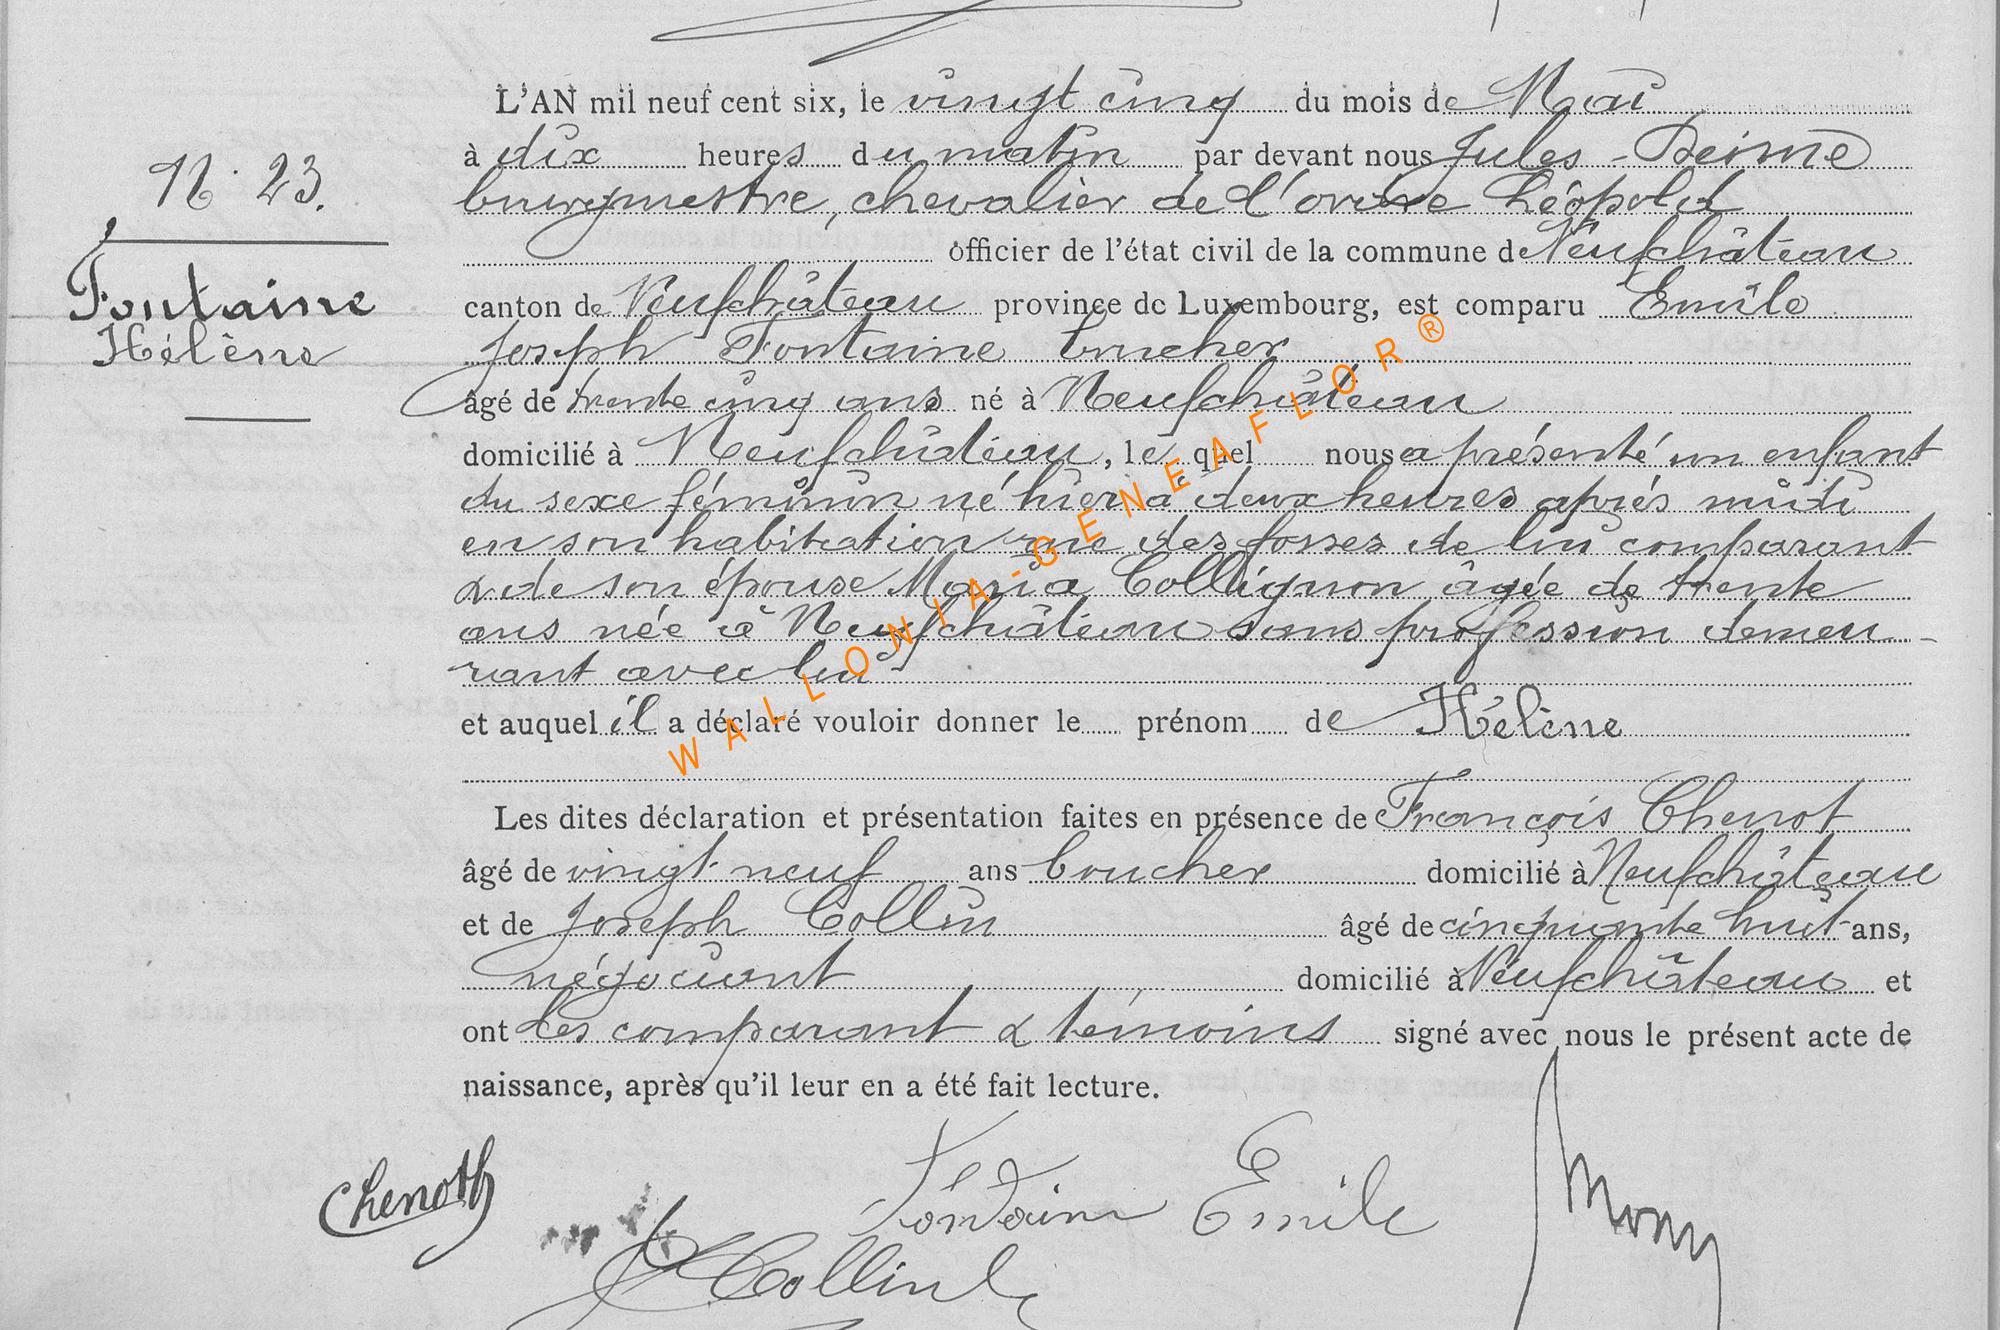 L'AN mil neuf cent six, le vingt cinq du mois de Mai
à dix heures du matin par devant nous Jules
burgmestre, chevalier de l'ordre Léopold
officier de l'état civil de la commune de Neufchâteau
canton de Neufchâteau province de Luxembourg, est comparu Emile
Joseph Fontaine boucher
âgé de trente cinq ans né à Neufchâteau
domicilié à Neufchâteau, le quel nous a présenté un enfant
du sexe féminin né hier à deux heures après midi
en son habitation rue des fosses de lui comparant
& de son épouse Maria Collignon âgée de trente
ans née à Neufchâteau sans profession demeu-
rant avec lui
et auquel il a déclaré vouloir donner le prénom de Hélène
Les dites déclaration et présentation faites en présence de François Chenot
âgé de vingt-neuf ans boucher domicilié à Neufchâteau
et de Joseph Collin âgé de cinquante huit ans,
négociant domicilié à Neufchâteau et
ont les comparant & témoins signé avec nous le présent acte de
naissance, après qu'il leur en a été fait lecture.
N. 23.
Fontaine
Hélène
WALLONIA-GENEAFLOR®
Chenoth
Fontaine Emile
Collin